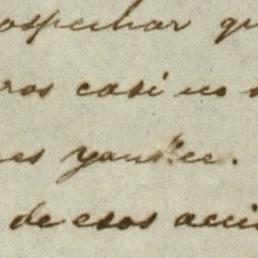 ospechar qu
ros casi no
es yankee.
de esos acci